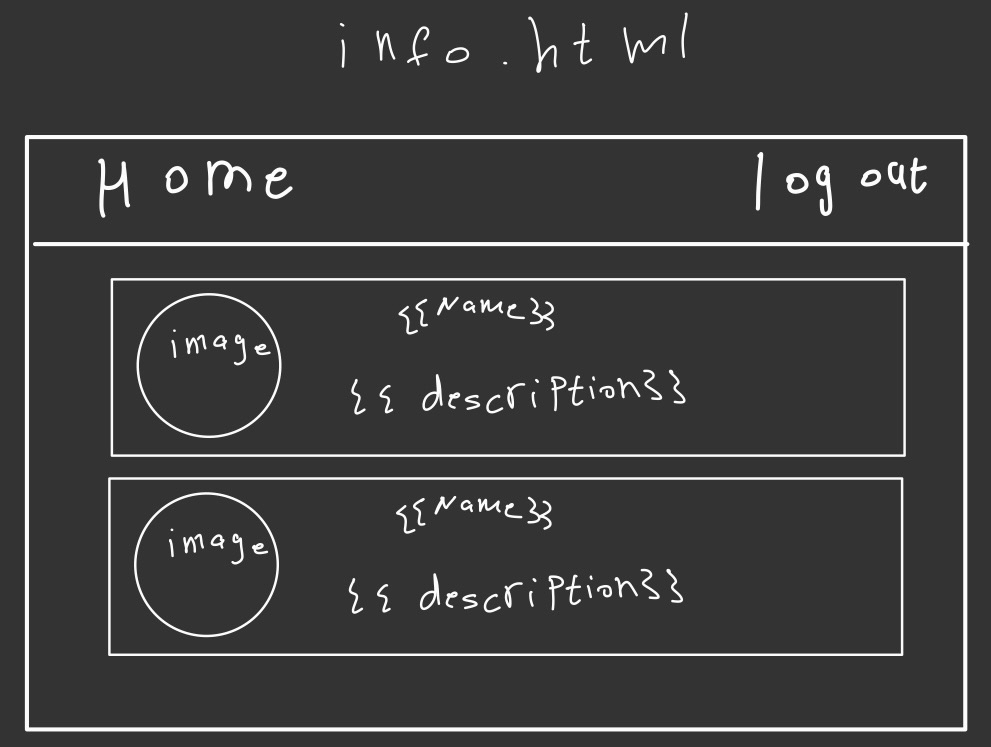 info.html
Home log out
image
{{Name}}
{{ description}}
image
{{Name}}
{{ description}}